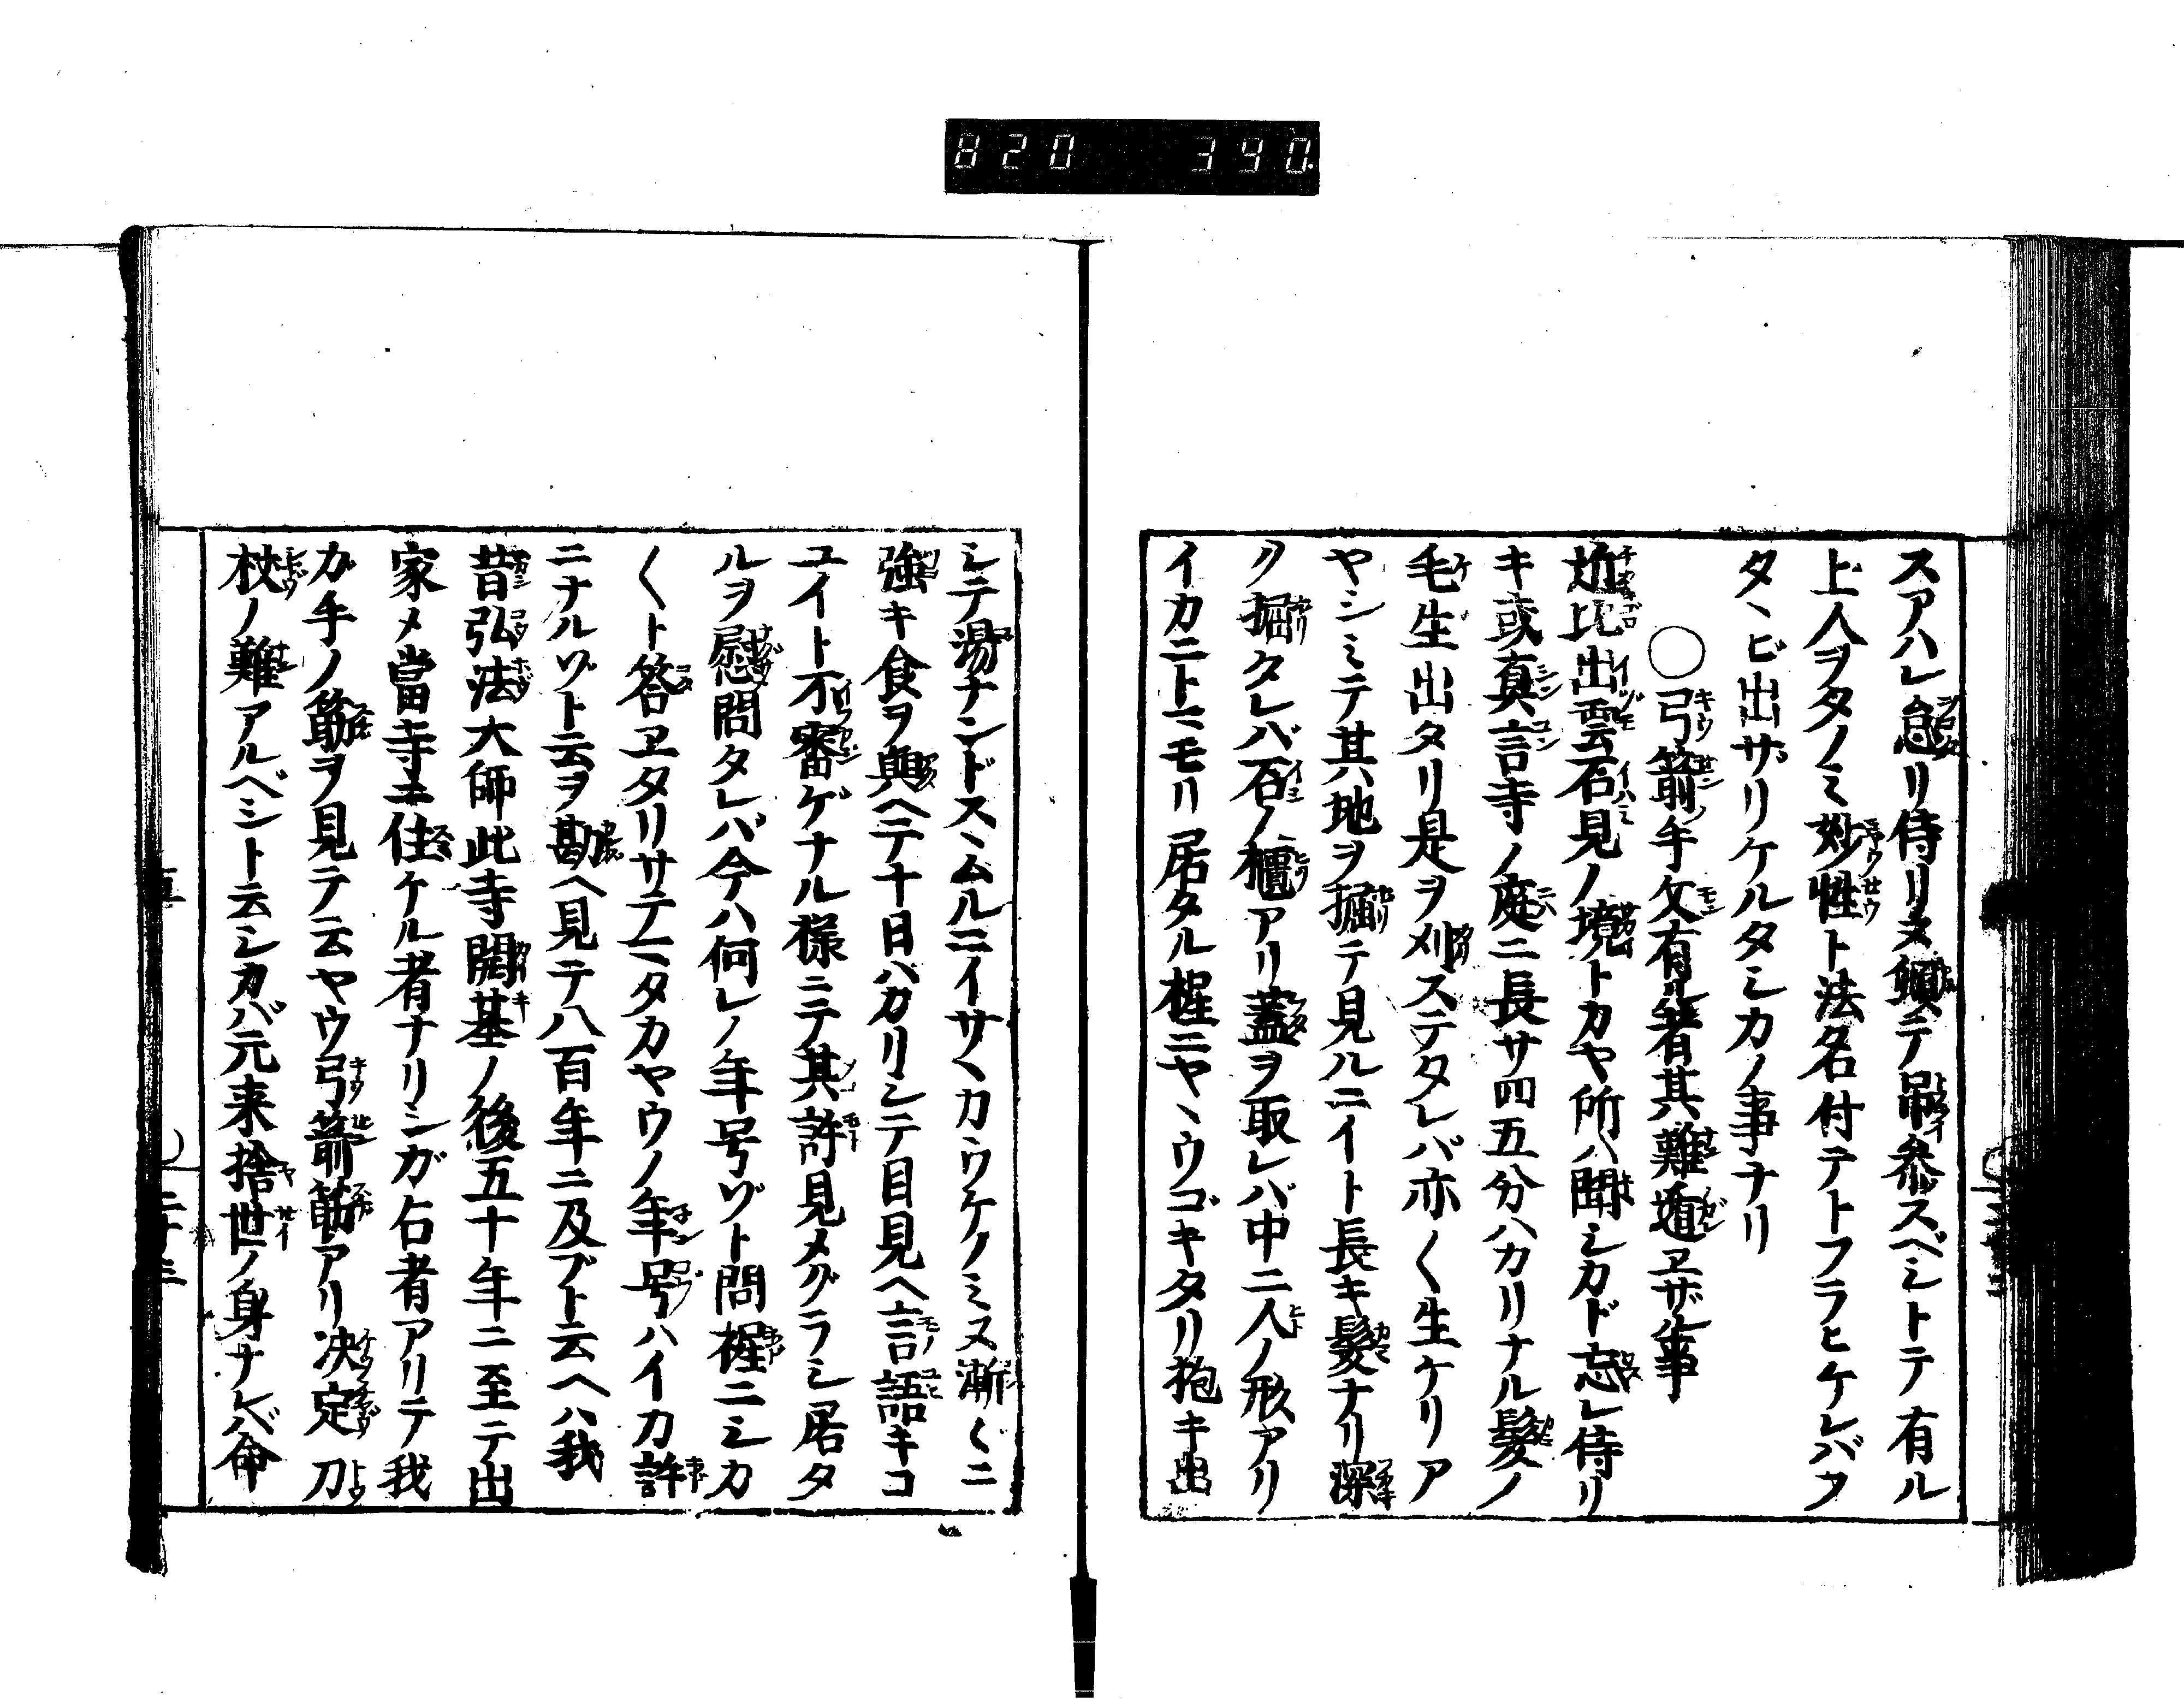 820 390.
スアハレ怠リ侍リヌ傾テ吊参スベシトテ有ル
上人ヲタノミ妙性ト法名付テトフラヒケレバフ
タヽビ出サリケルタシカノ事ナリ
○弓箭手文有ル者其難遁ヱザル事
近比出雲石見ノ境トカヤ所ハ聞シカド忘レ侍リ
キ或真言寺ノ庭ニ長サ四五分ハカリナル髪ノ
毛生出タリ是ヲ刈ステタレバ亦〱生ケリア
ヤシミテ其地ヲ掘テ見ルニイト長キ髪ナリ深
ク掘タレバ石ノ櫃アリ蓋ヲ取レバ中ニ人ノ形アリ
イカニトマモリ居タル程ニヤヽウゴキタリ抱キ出
シテ湯ナンドスヽムルニイサヽカウケノミヌ漸〱ニ
強キ食ヲ與ヘテ十日バカリシテ目見ヘ言語キコ
ユイト不審ゲナル様ニテ其許見メグラシ居タ
ルヲ慰問タレバ今ハ何レノ年号ゾト問程ニシカ
〱ト答ヱタリサテカヤウノ年号ハイカ許
ニナルゾト云ヲ勘ヘ見テ八百年ニ及ブト云ヘハ我
昔弘法大師此寺開基ノ後五十年ニ至テ出
家メ當寺ニ住ケル者ナリシガ占者アリテ我
ガ手ノ筋ヲ見テ云ヤウ弓箭筋アリ决定刀
杖ノ難アルベシト云シカバ元来捨世ノ身ナレバ命